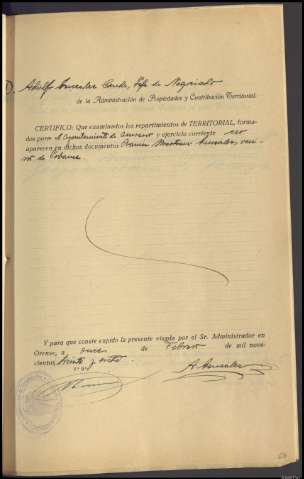 D. Adolfo González Conde, Jefe de Negociado
de la Administración de Propiedades y Contribución Territorial.
CERTIFICO: Que examinados los repartimientos de TERRITORIAL, forma-
dos para el Ayuntamiento de y ejercicio corriente no
aparecen en dichos documentos Martínez González, veci-
no de
Y para que conste expido la presente visada por el Sr. Administrador en
Orense, a once de Febrero de mil nove-
cientos treinta y ocho
V.º B.º
A. González